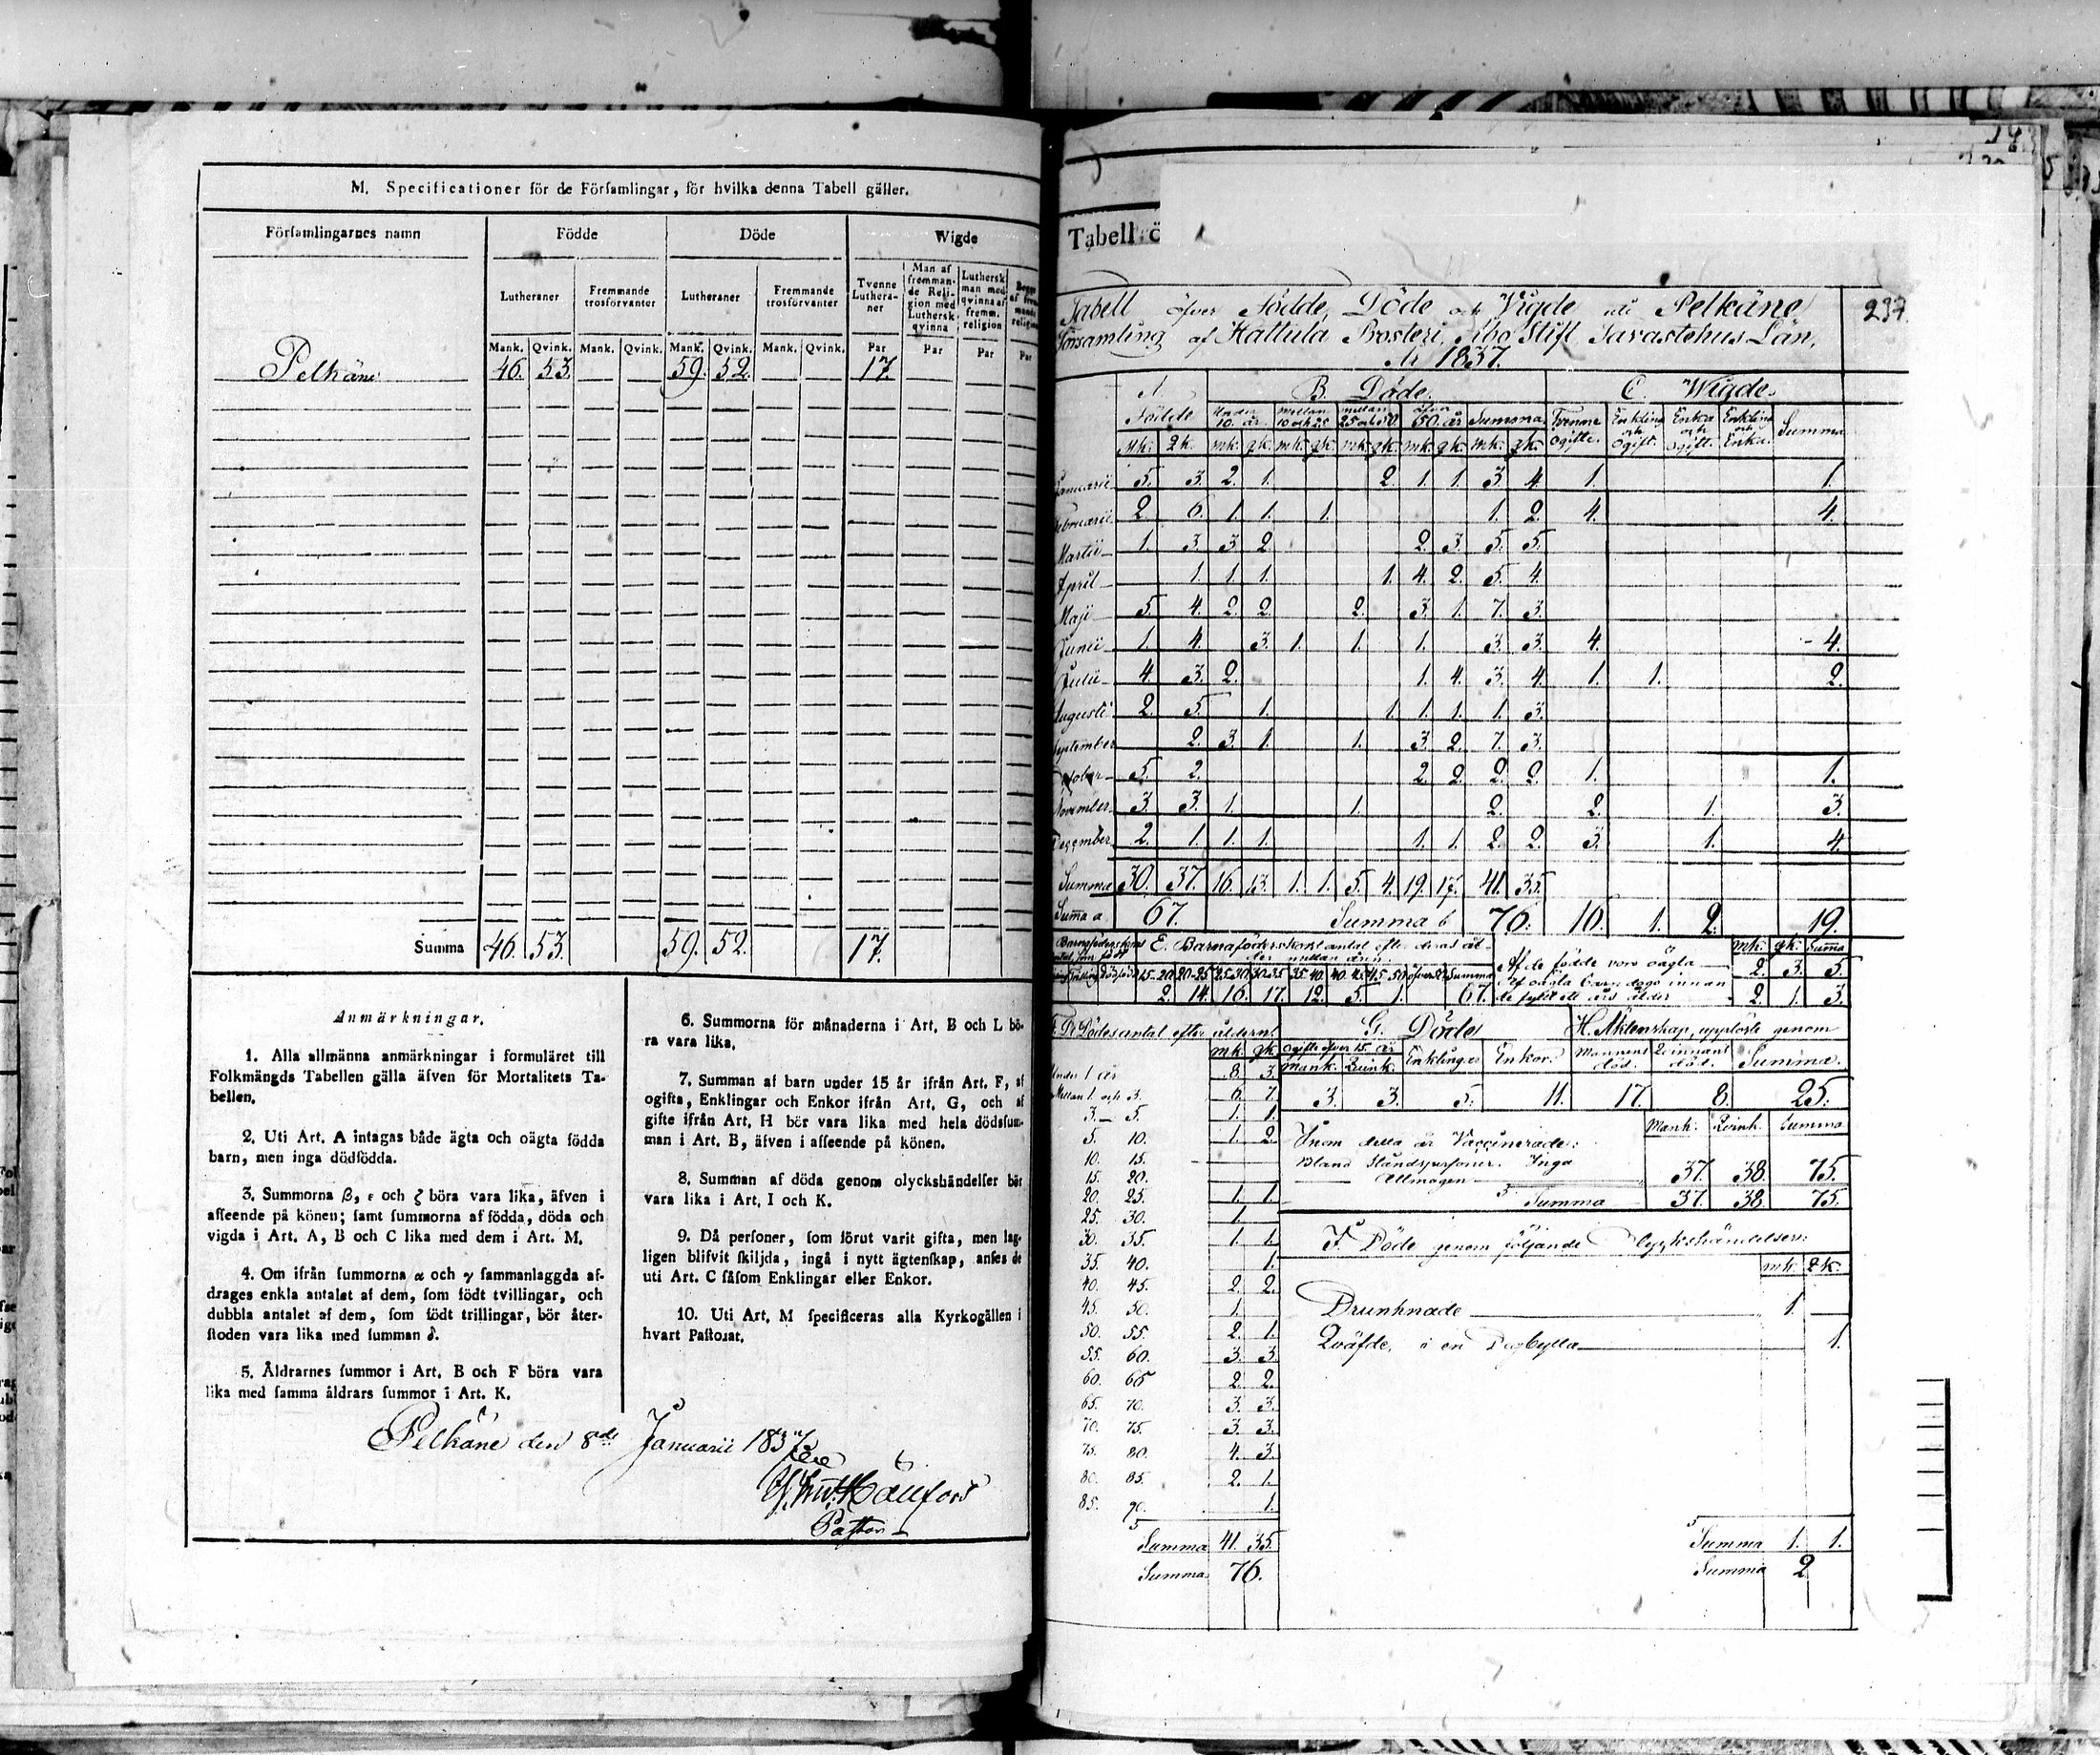 M. Specificationer för de Församlingar, för hvilka denna Tabell gäller.
Församlingarnes namn Födde Döde Wigde
Lutheraner Fremmande trosförvanter Lutheraner Fremmande trosförvanter Tvenne Lutheraner Man af fremmande Religion med Luthersk qvinna Luthersk man med qvinna af fremm. religion
Mank. Qvink. Mank. Qvink. Mank. Qvink. Mank. Qvink. Par Par Par Par
Pelkäne 46. 53. 59. 52. 17.
Summa 46. 53. 59. 52. 17.
Anmärkningar.
1. Alla allmänna anmärkningar i formuläret till
Folkmängds Tabellen gälla äfven för Mortalitets Ta-
bellen.
2. Uti Art. A intagas både ägta och oägta födda
barn, men inga dödfödda.
3. Summorna β, ε och ζ böra vara lika, äfven i
afseende på könen; samt summorna af födda, döda och
vigda i Art. A, B och C lika med dem i Art. M.
4. Om ifrån summorna α och γ sammanlaggda af-
drages enkla antalet af dem, som födt tvillingar, och
dubbla antalet af dem, som födt trillingar, bör åter-
stoden vara lika med summan δ.
5. Åldrarnes summor i Art. B och F böra vara
lika med samma åldrars summor i Art. K.
6. Summorna för månaderna i Art. B och L bö-
ra vara lika.
7. Summan af barn under 15 år ifrån Art. F, af
ogifta, Enklingar och Enkor ifrån Art. G, och af
gifte ifrån Art. H bör vara lika med hela dödssum-
man i Art. B, äfven i afseende på könen.
8. Summan af döda genom olyckshändelser bör
vara lika i Art. I och K.
9. Då personer, som förut varit gifta, men lag-
ligen blifvit skiljda, ingå i nytt ägtenskap, anses de
uti Art. C såsom Enklingar eller Enkor.
10. Uti Art. M specificeras alla Kyrkogällen i
hvart Pastorat.
Pelkäne den 8de Januarii 1837
Pastor
Tabell ö
Tabell öfver Födde, Döde och Vigde uti Pelkäne 237.
Församling af Hattula Prosteri, Åbo Stift Tavastehus Län,
År 1837.
A B. Döde. C. Wigde.
Födde Under 10. år. mellan 10 och 25 mellan 25 och 50. öfver 50. år Summa Tvenne ogifte. Enkling och ogift. Enka och ogift. Enkling och Enka. Summa
Mk. Qk. mk. qk. mk. qk. mk. qk. mk. qk. mk. qk.
Januarii 5. 3. 2. 1. 2. 1. 1. 3. 4. 1. 1.
Februarii 2. 6. 1. 1. 1. 1. 2. 4. 4.
Martii 1. 3. 3. 2. 2. 3. 5. 5.
April 1. 1. 1. 1. 4. 2. 5. 4.
Maji 5. 4. 2. 2. 2. 3. 1. 7. 3.
Junii 1. 4. 3. 1. 1. 1. 3. 3. 4. 4.
Julii 4. 3. 2. 1. 4. 3. 4. 1. 1. 2.
Augusti 2. 5. 1. 1. 1. 1. 1. 3.
September 2. 3. 1. 1. 3. 2. 7. 3.
October 5. 2. 2. 2. 2. 2. 1. 1.
November 3. 3. 1. 1. 2. 2. 1. 3.
December 2. 1. 1. 1. 1. 1. 2. 2. 3. 1. 4.
Summa 30. 37. 16. 13. 1. 1. 5. 4. 19. 17. 41. 35.
Summa a 67. Summa b 76. 16. 1. 2. 19.
E. Barnaföderskors antal efter deras ålder mellan åren. mk. qk. Summa
15-20. 20-25. 25-30. 30-35. 35-40. 40-45. 45-50. öfver 50. Summa Af de födde voro oägta 2. 3. 5.
2. 14. 16. 17. 12. 5. 1. 67. Af oägta barn dogo innan de fyllt ett års ålder 2. 1. 3.
F. De Dödes antal efter åldern. G. Döde H. Äktenskap, upplöste genom
mk. qk. Ogifte öfver 15. år Enklingar Enkor. Mannens död. Qvinnans död. Summa.
Mank. Qvink.
3. 3. 5. 11. 17. 8. 25.
Under 1 år 8. 3.
Mellan 1. och 3. 6. 7.
3. - 5. 1. 1.
5. 10. 1. 2.
10. 15.
15. 20.
20. 25. 1. 1.
25. 30. 1.
30. 35. 1. 1.
35. 40. 1.
40. 45. 2. 2.
45. 50. 1.
50. 55. 2. 1.
55. 60. 3. 3.
60. 65 2. 2.
65. 70. 3. 3.
70. 75. 3. 3.
75. 80. 4. 3.
80. 85. 2. 1.
85. 90. 1.
Summa 41. 35.
Summa 76.
Mank. Qvink. Summa
Inom detta år Vaccinerade:
Bland Ståndspersoner. Inga
Allmogen 37. 38. 75.
Summa 37. 38. 75.
I. Döde genom följande Olyckshändelser:
mk. qk.
Drunknade 1
Qväfde, i en 1.
Summa 1. 1.
Summa 2